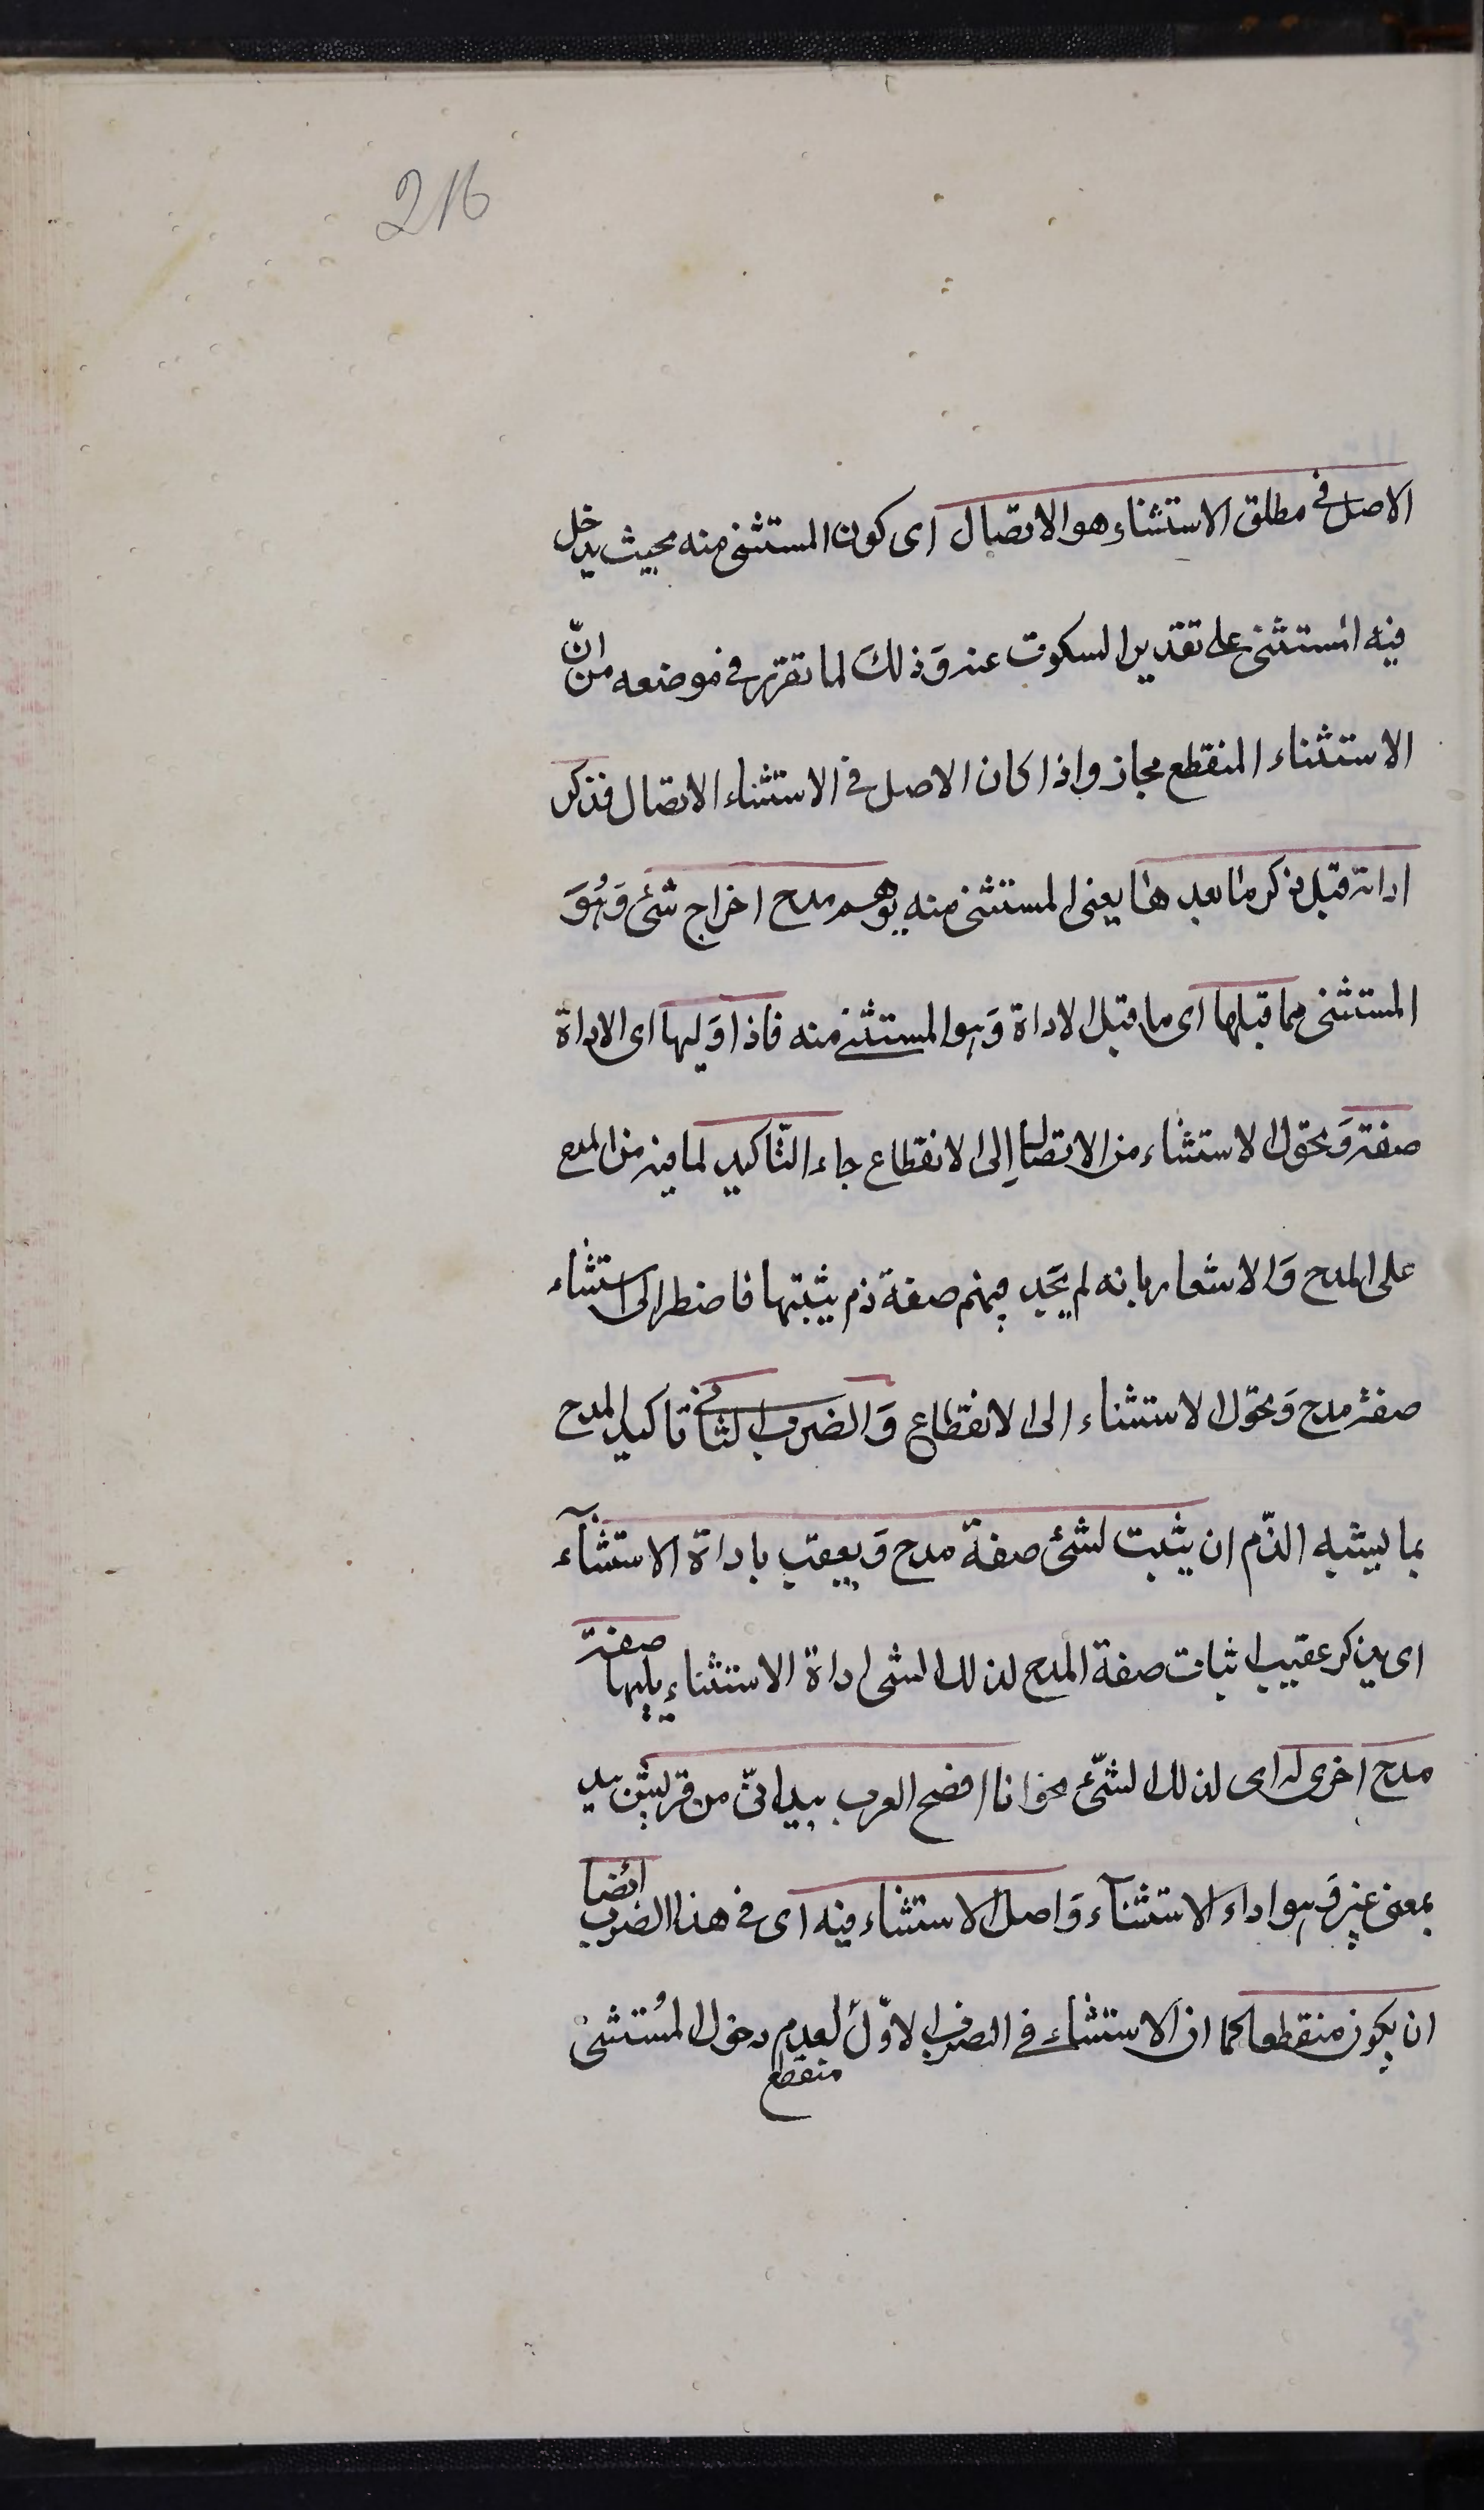 216
الاصل فى مطلق الاستثناء هو الاتصال اى كون المستثنى منه بحيث يدخل
فيه المستثنى على تقدير السكوت عنه وَذلكَ لما تقرّر فى موضعه من انّ
الاستثناء المنقطع مجاز واذا كان الاصل فى الاستثناء الاتصال فذكر
اداته قبل ذكر ما بعدها يعنى المستثنى منه يوهم مدح اخراج شئ وَهُوَ
المستثنى مما قبلها اى ما قبل الاداة وَهو المستثنى منه فاذا وَليها اى الاداة
صفة وَتحول الاستثناء من الاتصال اِلى الانقطاع جاء التّاكيد لما فيه من المدح
على المدح وَالاشعار بانه لم يَجد فيهم صفة ذم يثبتها فاضطر الى استثناء
صفة مدح وَتحوّل الاستثناء الى الانقطاع وَالضرب الثانى تاكيد المدح
بما يشبه الذّم ان يثبت لشئ صفة مدح وَيعقب باداة الاستثنآء
اى يذكر عقيب اثبات صفة المدح لذلك الشى اداة الاستثناء يليها صفة
مدح اخرى له اى لذلك الشّئ نحو انا افصح العرب بيد انّى من قريش بيد
بمعنى غير وَهو اداء الاستثنآء وَاصل الاستثناء فيه اى فى هذا الضرب ايضا
ان يكون منقطعا كما ان الاستثناء فى الضرب الاوّل لعدم دخول المُستثنى
منقطع